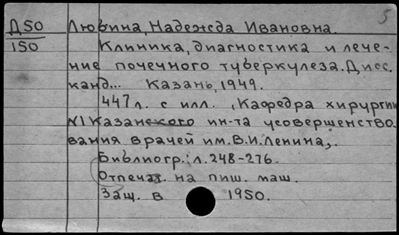 5
Д50 Любина, Надежда Ивановна.
150 Клиника, диагностика и лече-
ние почечного туберкулеза. Дисс.
канд... Казань, 1949.
447 л. с илл. (Кафедра хирургии
N1 Казанского ин-та усовершенство-
вания врачей им. В.И. Ленина).
Библиогр.: л. 248-276.
Отпечат. на пиш. маш.
Защ. в 1950.